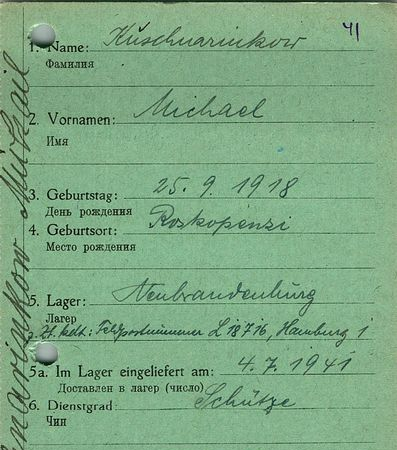 41
1. Name: Kuschnarinkow
Фамилия
2. Vornamen: Michael
Имя
3. Geburtstag: 25. 9. 1918
День рождения
4. Geburtsort: Roskopenzi
Место рождения
5. Lager: Neubrandenburg
Лагер
z. Zt. kdt: Feldpostnummer L 18716, Hamburg 1
5a. Im Lager eingeliefert am: 4. 7. 1941
Доставлен в лагер (число)
6. Dienstgrad: Schütze
Чин